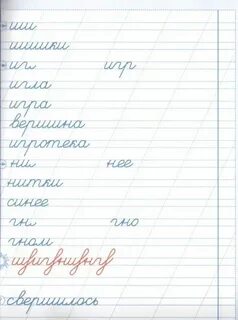 ши
шишки
игл игр
игла
игра
вершина
игротека
нил нее
нитки
синее
гнл гно
гном
свершилось